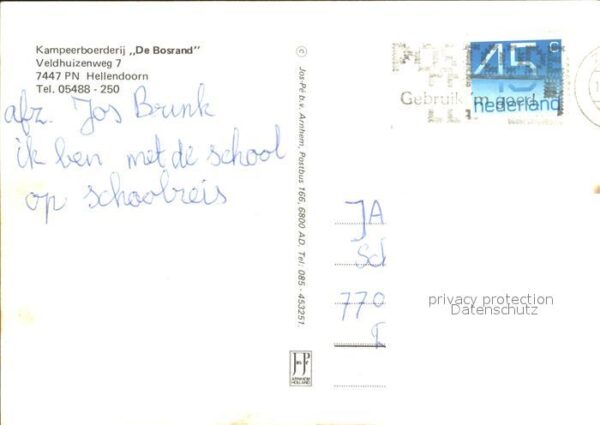 Kampeerboerderij „De Bosrand”
Veldhuizenweg 7
7447 PN Hellendoorn
Tel. 05488 - 250
afz. Jos Brink
ik ben met de school
op schoolreis
© Jos-Pé b.v. Arnhem, Postbus 166, 6800 AD. Tel: 085 - 453251.
JosPé
ARNHEM
HOLLAND
POSTCODE
Gebruik 'm goed
45 c
nederland
JA
Sch
770
privacy protection
Datenschutz